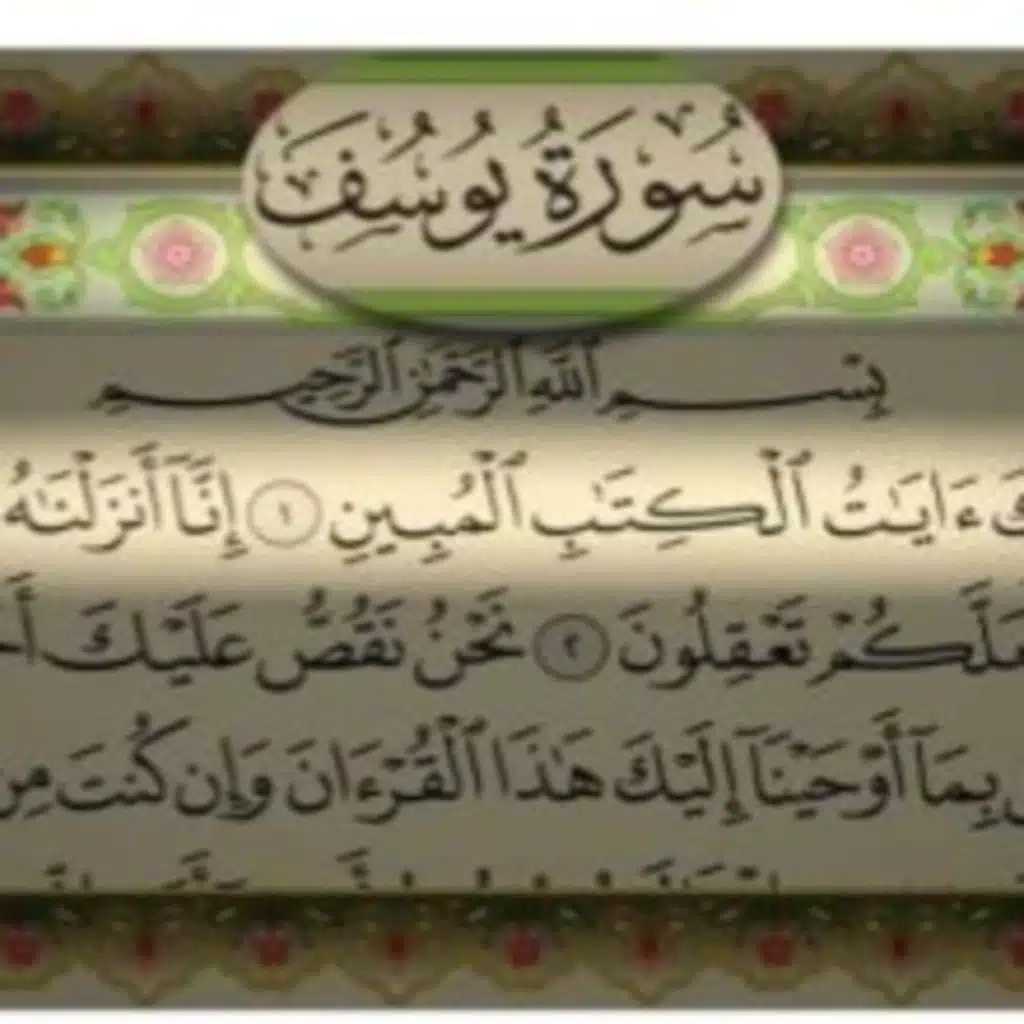 سُورَةُ يُوسُفَ
بِسْمِ ٱللَّهِ ٱلرَّحْمَٰنِ ٱلرَّحِيمِ
كَ ءَايَٰتُ ٱلْكِتَٰبِ ٱلْمُبِينِ ١ إِنَّآ أَنزَلْنَٰهُ
عَلَّكُمْ تَعْقِلُونَ ٢ نَحْنُ نَقُصُّ عَلَيْكَ أَحْ
بِمَآ أَوْحَيْنَآ إِلَيْكَ هَٰذَا ٱلْقُرْءَانَ وَإِن كُنتَ مِن